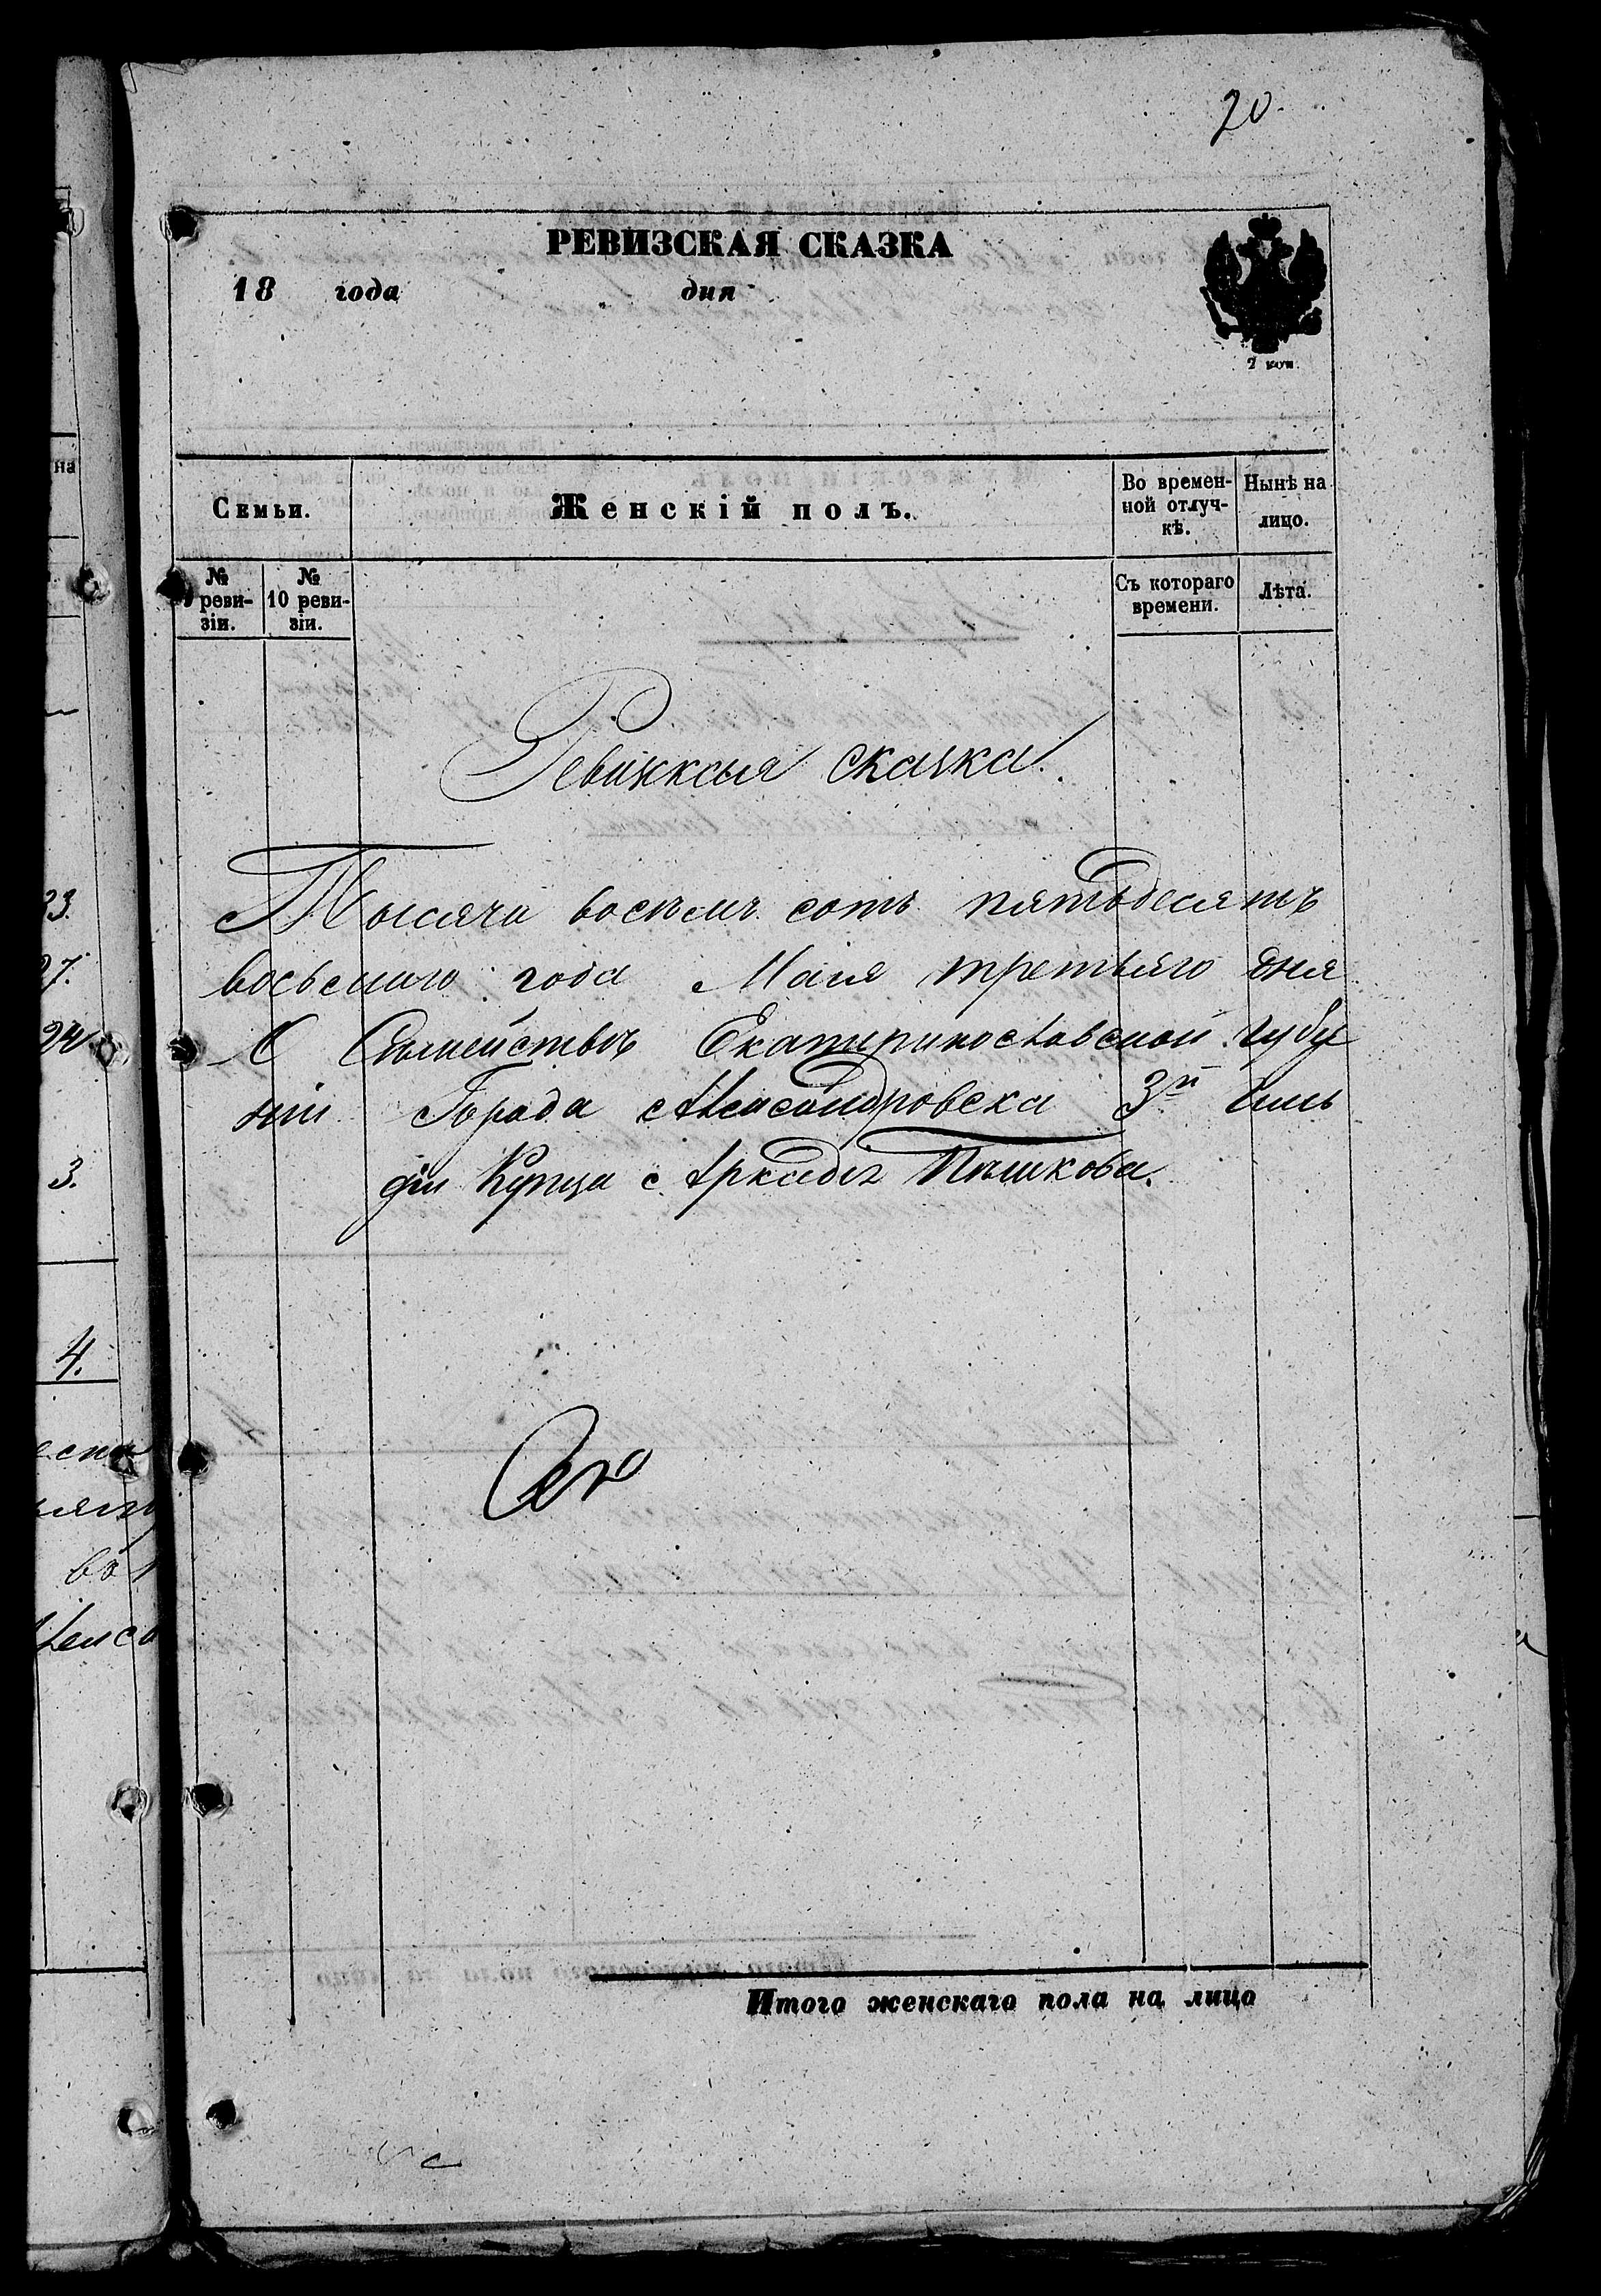 20.
РЕВИЗСКАЯ СКАЗКА
18 года дня
2 коп.
Семьи.
Женскій полъ.
Во времен-
ной отлуч-
кѣ.
Нынѣ на
лицо.
№
реви-
зіи.
№
10 реви-
зіи.
Съ котораго
времени.
Лѣта.
Ревизкая сказка.
Тысяча восемь сотъ пятьдесятъ
восьмаго года Мая третьяго дня
О Сѣмействѣ Екатеринославской губер
ніи Города Александровска 3й Гиль
діи Купца Аркадія Пѣшкова.
Итого женскаго пола на лицо
на
23.
27.
24
3.
4.